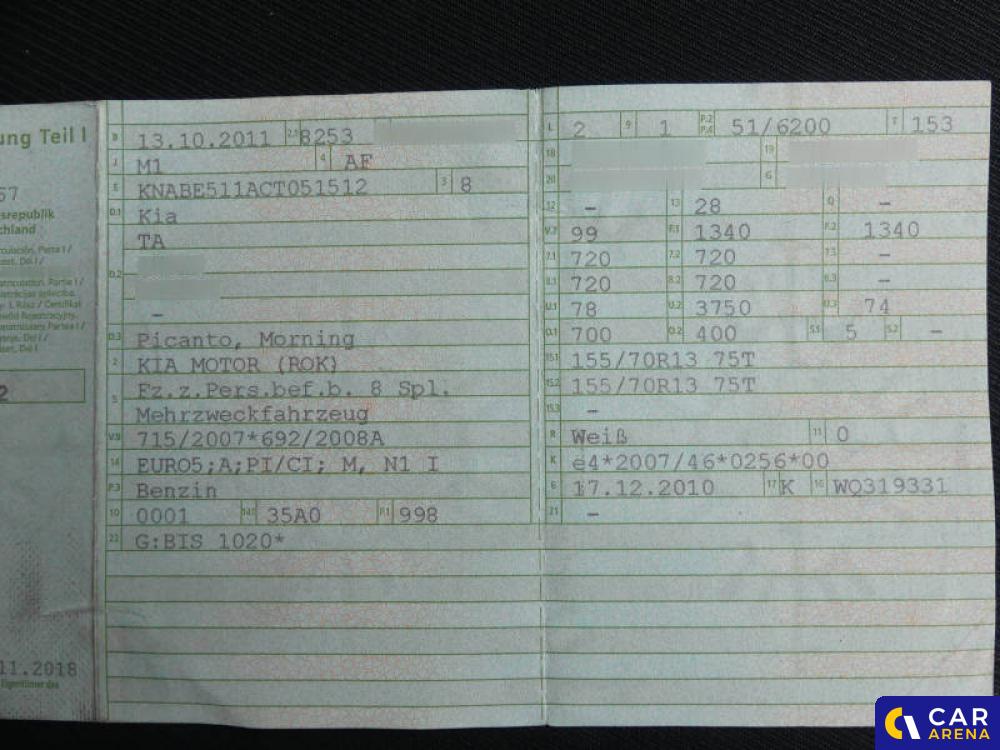 ung Teil I
57
esrepublik
chland
2
11.2018
B 13.10.2011 2.1 8253
J M1 4 AF
E KNABE511ACT051512 3 8
D.1 Kia
TA
D.2
–
D.3 Picanto, Morning
2 KIA MOTOR (ROK)
5 Fz.z.Pers.bef.b. 8 Spl.
Mehrzweckfahrzeug
V.9 715/2007*692/2008A
14 EURO5;A;PI/CI; M, N1 I
P.3 Benzin
10 0001 14.1 35A0 P.1 998
22 G:BIS 1020*
L 2 9 1 P.2 P.4 51/6200 T 153
18 19
20 G
12 – 13 28 Q –
V.7 99 F.1 1340 F.2 1340
7.1 720 7.2 720 7.3 –
8.1 720 8.2 720 8.3 –
U.1 78 U.2 3750 U.3 74
O.1 700 O.2 400 S.1 5 S.2 –
15.1 155/70R13 75T
15.2 155/70R13 75T
15.3 –
R Weiß 11 0
K e4*2007/46*0256*00
6 17.12.2010 17 K 16 WQ319331
21 –
CAR
ARENA